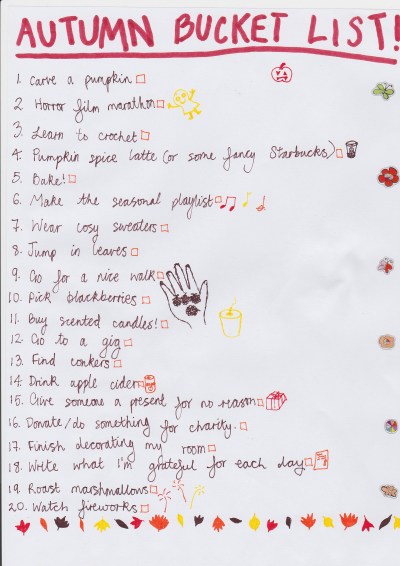 AUTUMN BUCKET LIST!
1. Carve a pumpkin
2 Horror film marathon
3. Learn to crochet
4. Pumpkin spice latte (or some fancy Starbucks)
5. Bake!
6. Make the seasonal playlist
7. Wear cosy sweaters
8. Jump in leaves
9. Go for a nice walk
10. Pick blackberries
11. Buy scented candles!
12. Go to a gig
13. Find conkers
14. Drink apple cider
15. Give someone a present for no reason
16. Donate/do something for charity.
17. Finish decorating my room
18. Write what I'm grateful for each day
19. Roast marshmallows
20. Watch fireworks